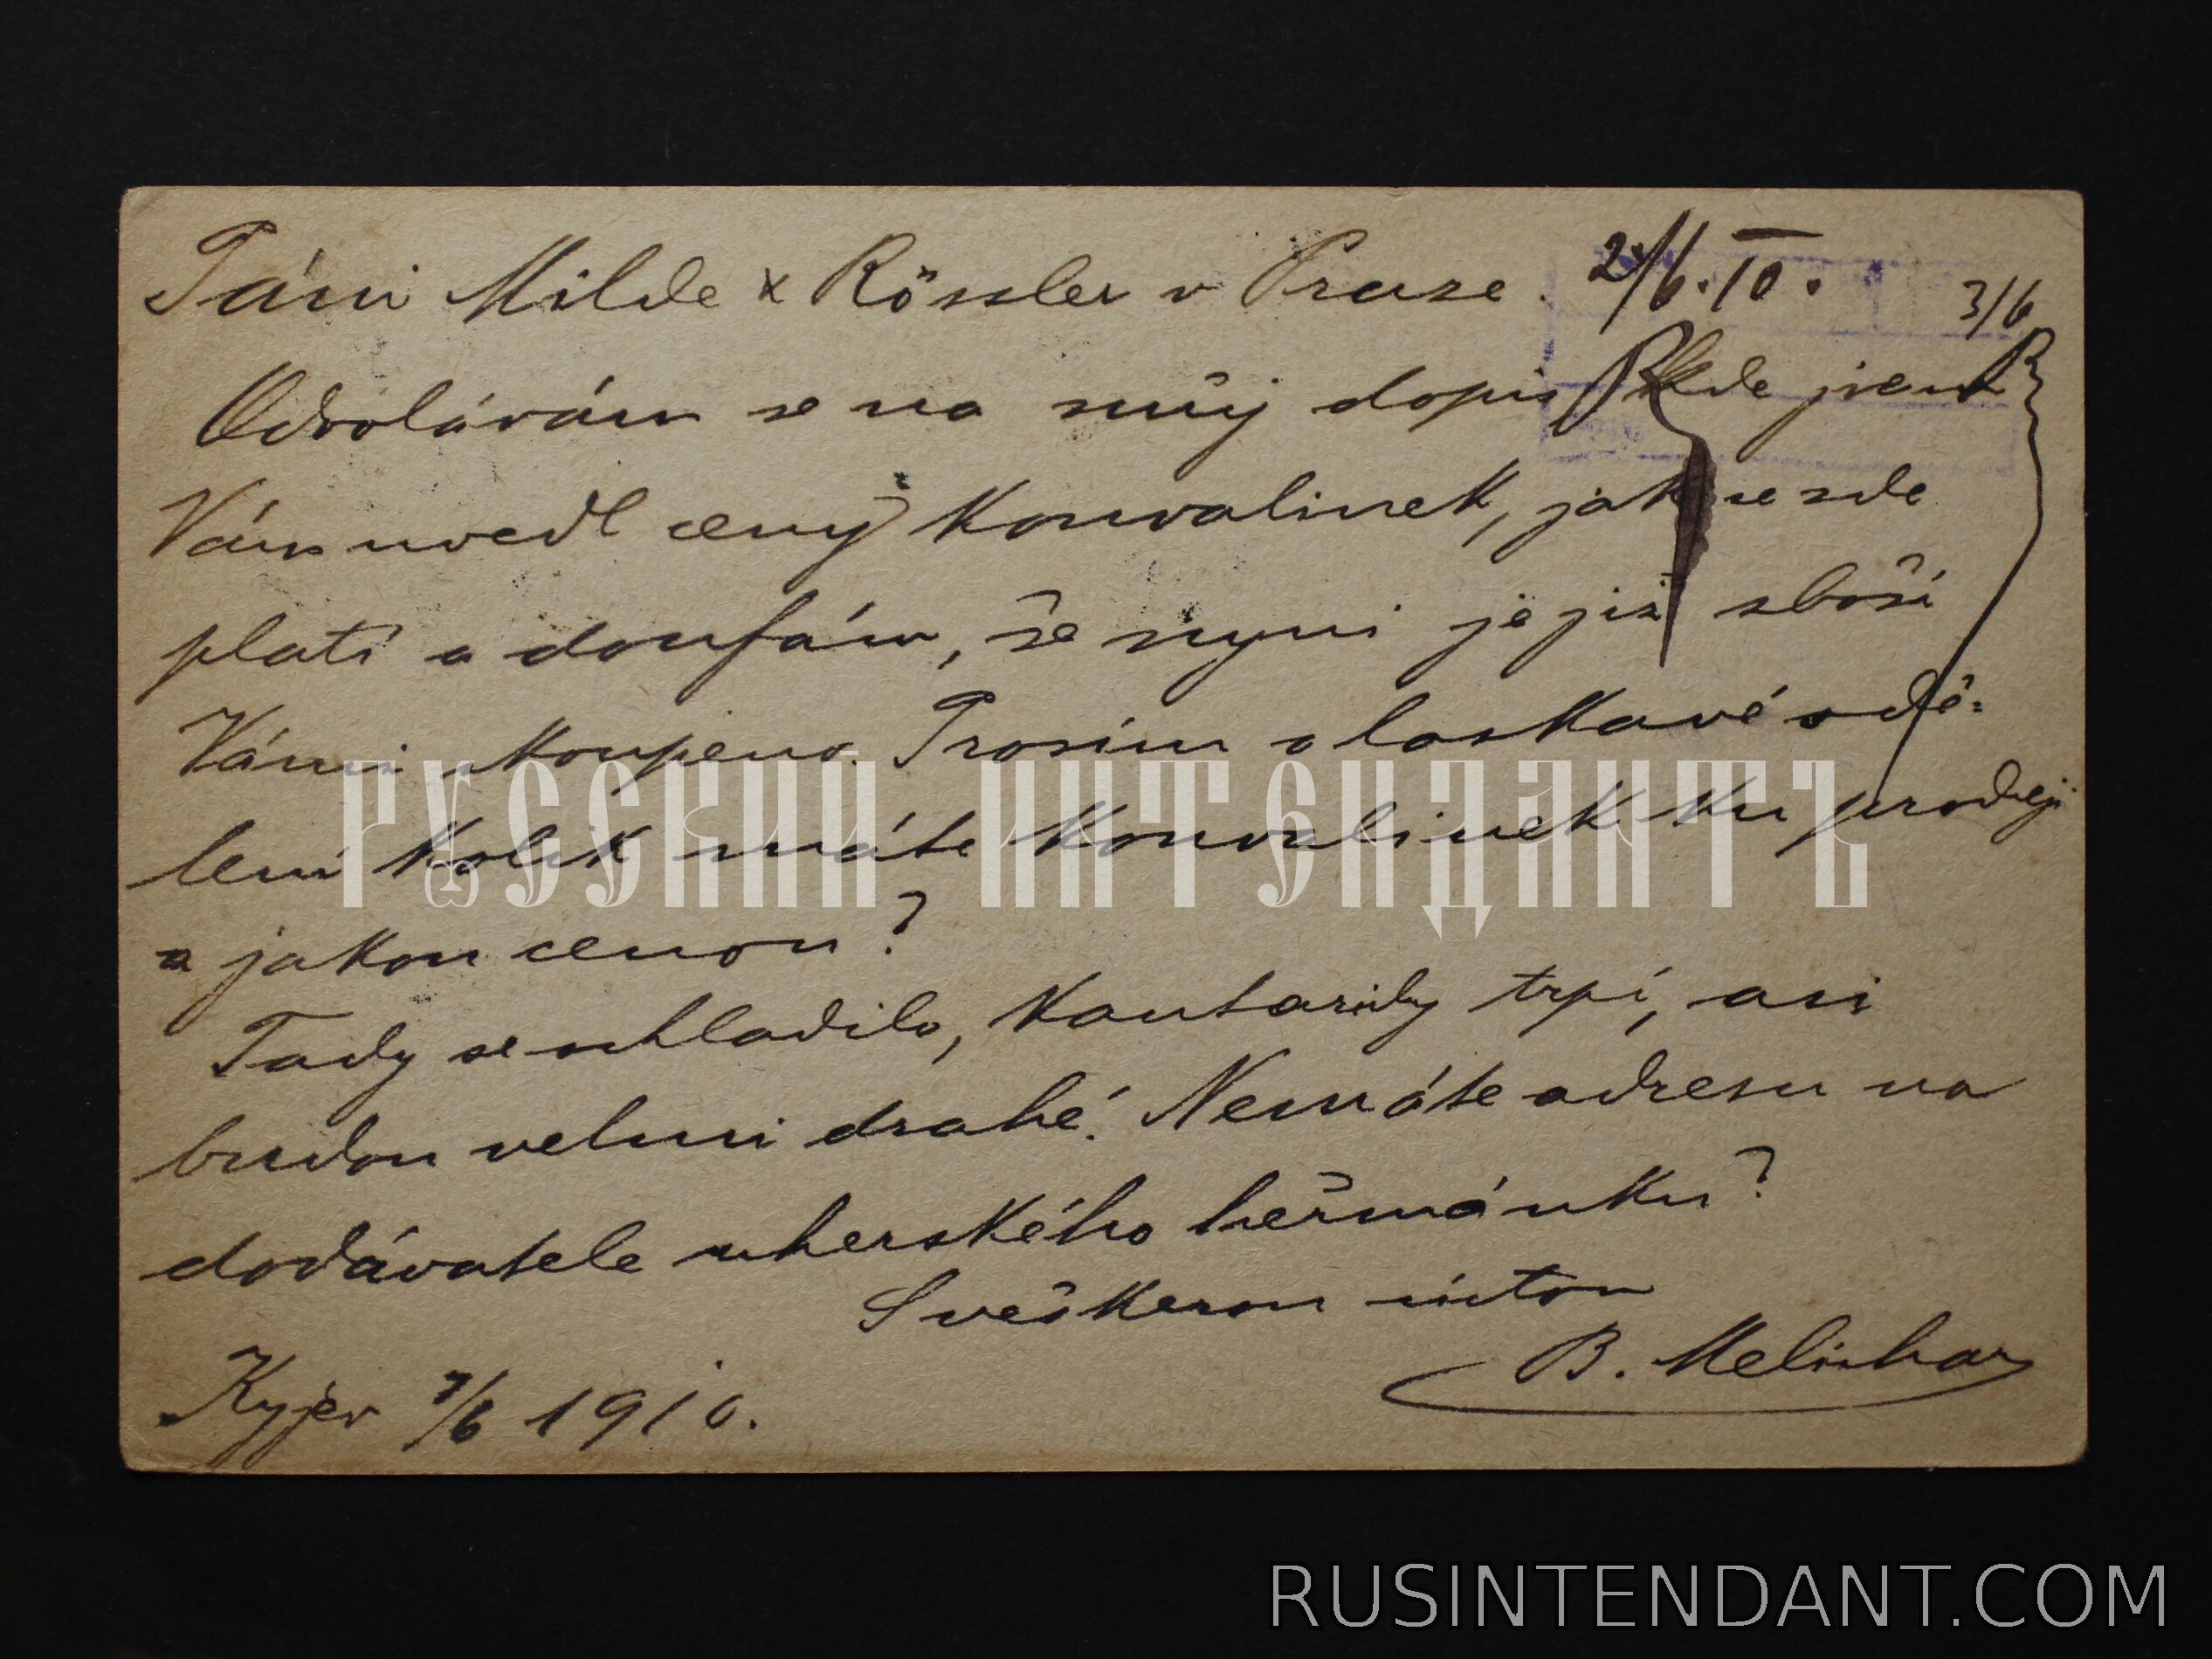 Páni Milde & Rössler v Praze. 2/6.10.
3/6
Odvolávám se na můj dopis kde jsem
Vám uvedl ceny konvalinek, jak se zde
platí a doufám, že nyni je již zboží
Vámi koupeno. Prosím o laskavé sdě-
lení kolik máte konvalinek ku prodeji
a jakou cenou?
Tady se ochladilo, kantaridy trpí, asi
budou velmi drahé. Nemáte adresu na
dodávatele uherského heřmánku?
S veškerou úctou
B. Melichar
Kyjev 7/6 1910.
РУССКИЙ ИНТЕНДАНТЪ
RUSINTENDANT.COM